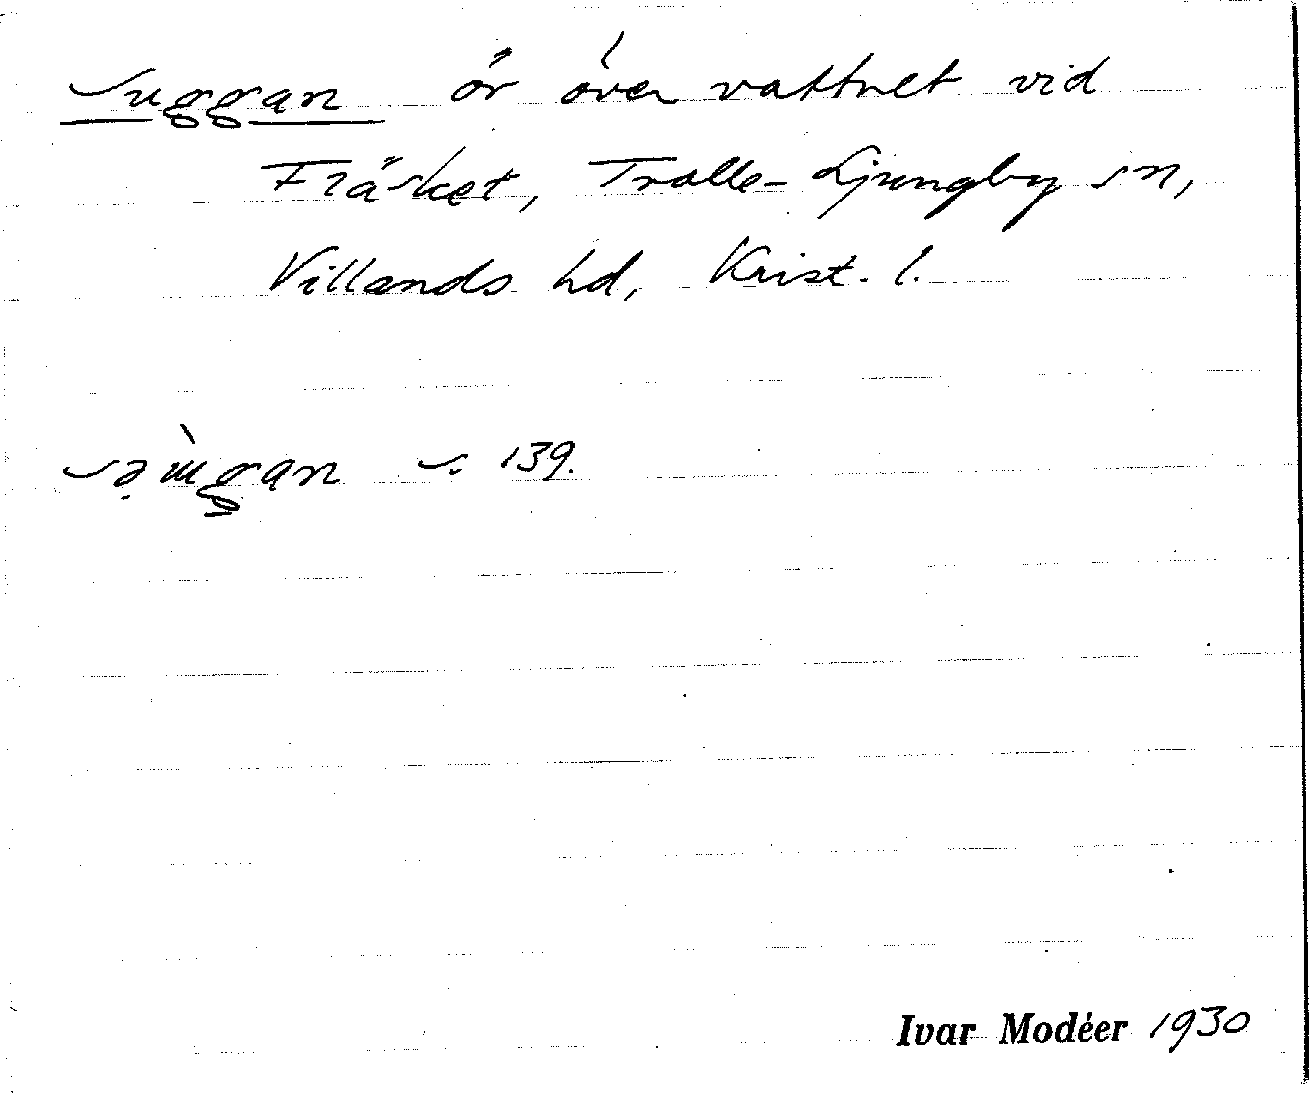 Suggan ör över vattnet vid
Fläsket, Trolle-Ljungby sn,
Villands hd, Krist. l.
s. 139.
Ivar Modéer 1930